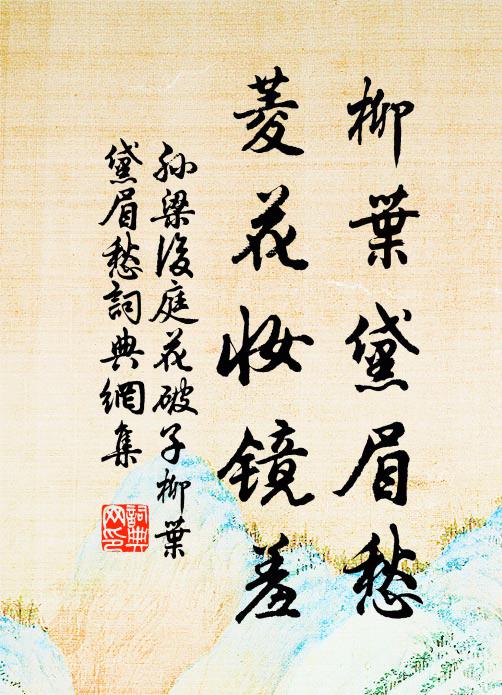 柳葉黛眉愁
菱花妆镜羞
孙梁後庭花破子柳葉
黛眉愁詞典網集
詞典
网印